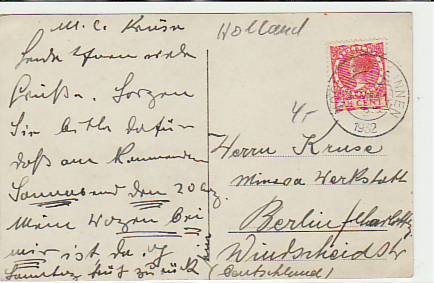 M. C. Kruse
Sende Ihnen viele
Grüße. Sorgen
Sie bitte dafür
daß am kommenden
Sonnabend den 20 Aug.
mein Wagen bei
mir ist da
Sonntag früh zurück
Holland
CENT
1932
Herrn Kruse
Minerva Werkstatt
Berlin/Charlottbg
Windscheidstr
(Deutschland)